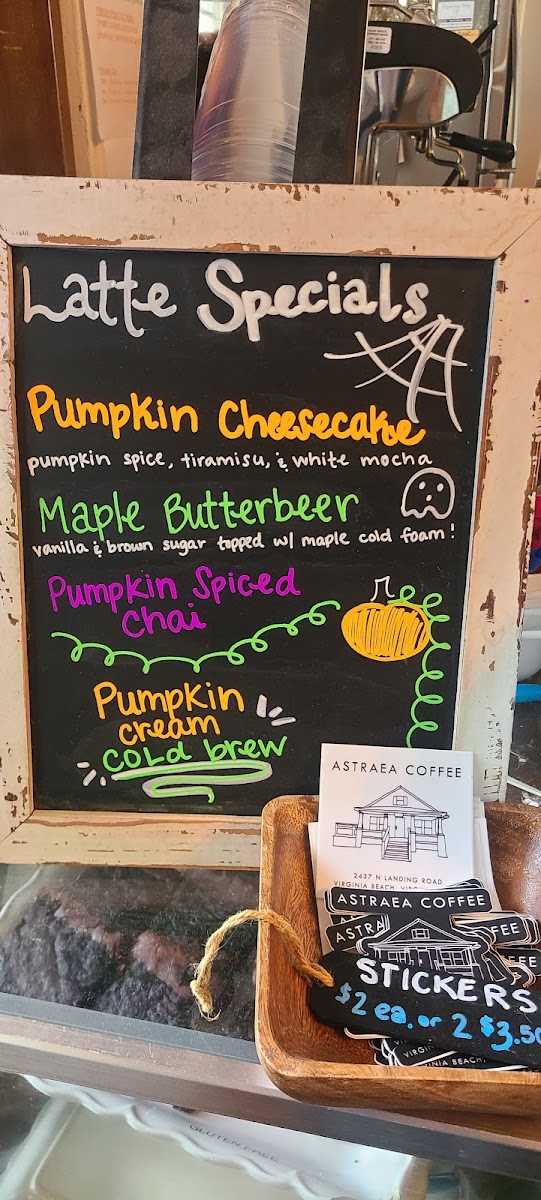 Latte Specials
Pumpkin Cheesecake
pumpkin spice, tiramisu, & white mocha
Maple Butterbeer
vanilla & brown sugar topped w/ maple cold foam!
Pumpkin Spiced
Chai
Pumpkin
cream
cold brew
ASTRAEA COFFEE
2437 N LANDING ROAD
VIRGINIA BEACH,
ASTRAEA COFFEE
ASTRA
FEE
STICKERS
$2 ea. or 2 $3.50
VIRGINIA BEACH,
GLUTEN FREE